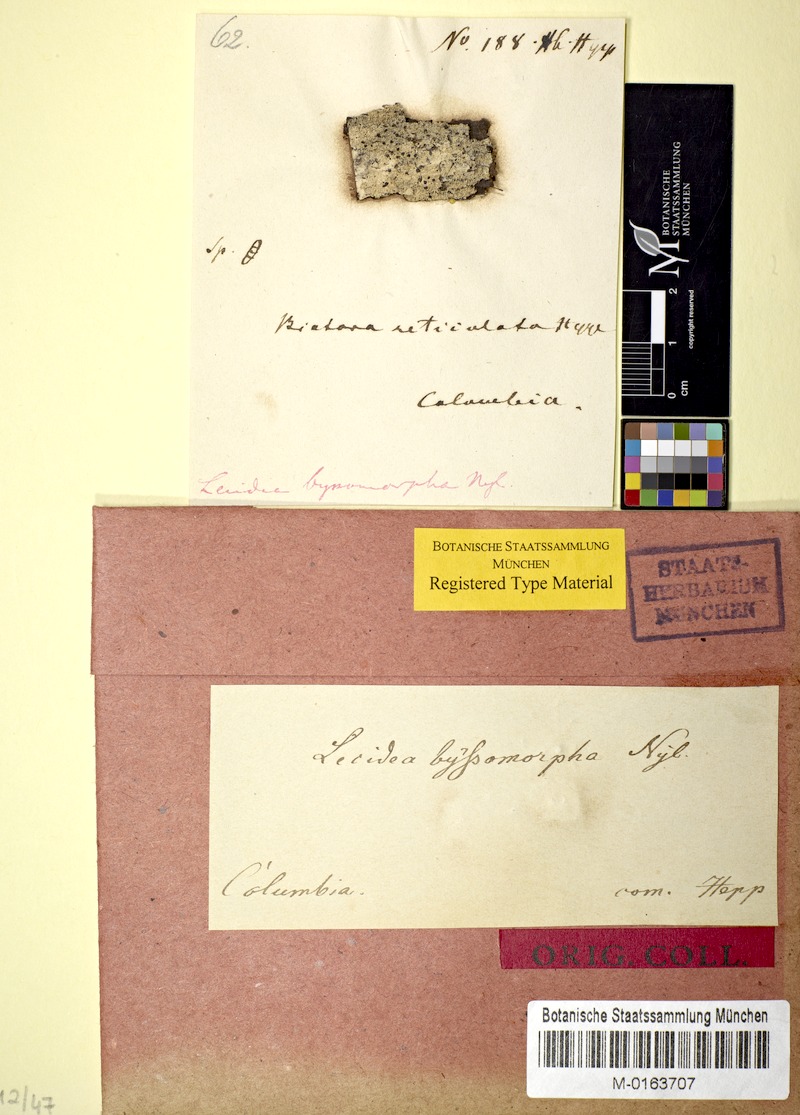 62.
No. 188. Hb. Hepp
Sp.
Biatora reticulata Hepp
Columbia.
Lecidea byssomorpha Nyl.
BOTANISCHE
STAATSSAMMLUNG
MÜNCHEN
M
0 1 2
cm
copyright reserved
BOTANISCHE STAATSSAMMLUNG
MÜNCHEN
Registered Type Material
STAATS-
HERBARIUM
MÜNCHEN
Lecidea byssomorpha Nyl.
Columbia.
com. Hepp
ORIG. COLL.
Botanische Staatssammlung München
M-0163707
12/47